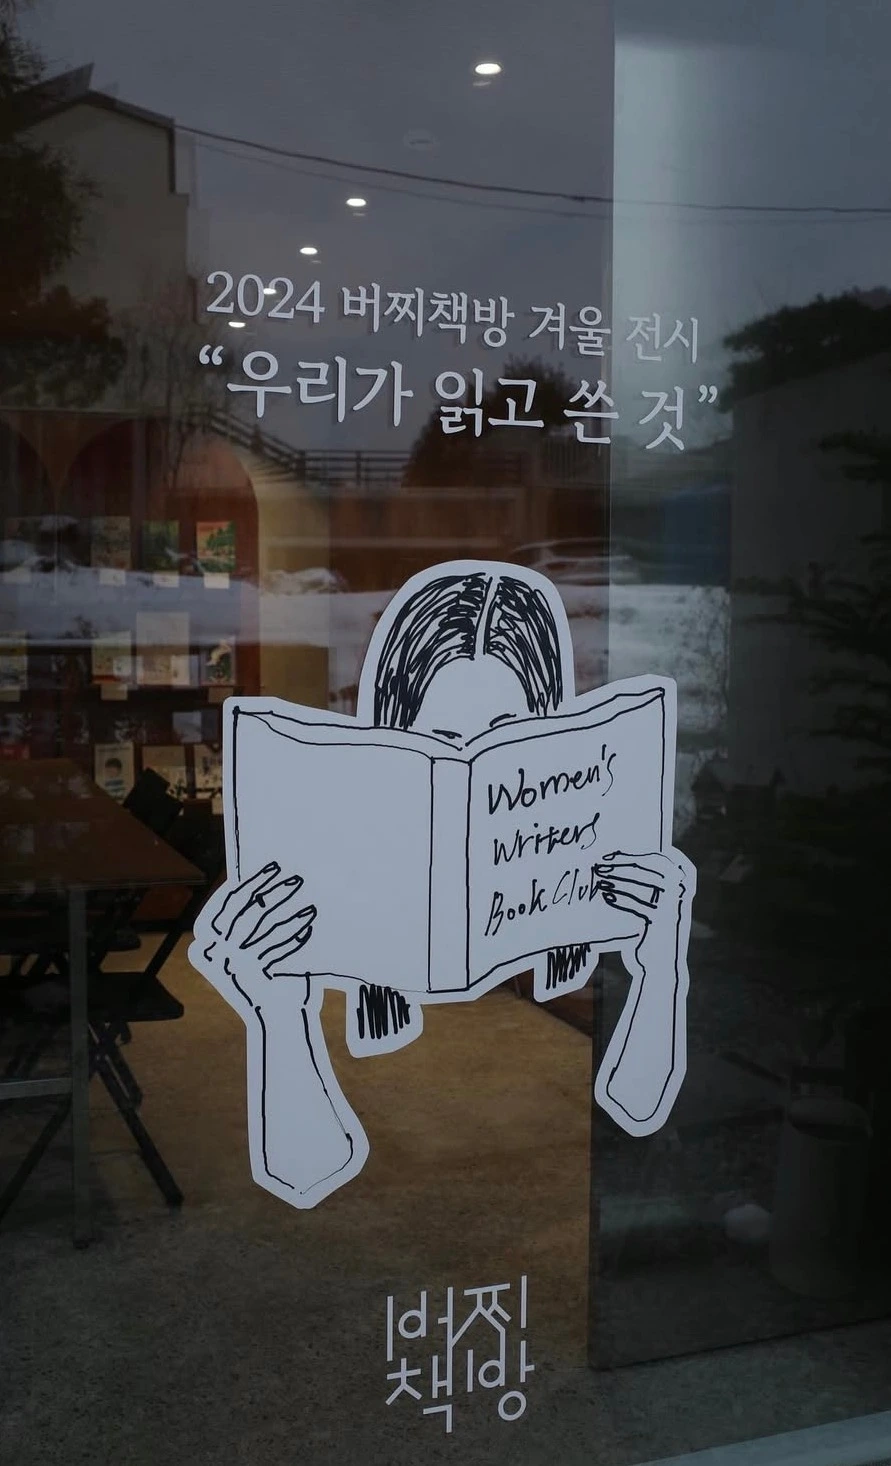 2024 버찌책방 겨울 전시
“우리가 읽고 쓴 것”
Women's
Writers
Book Club
버찌
책방